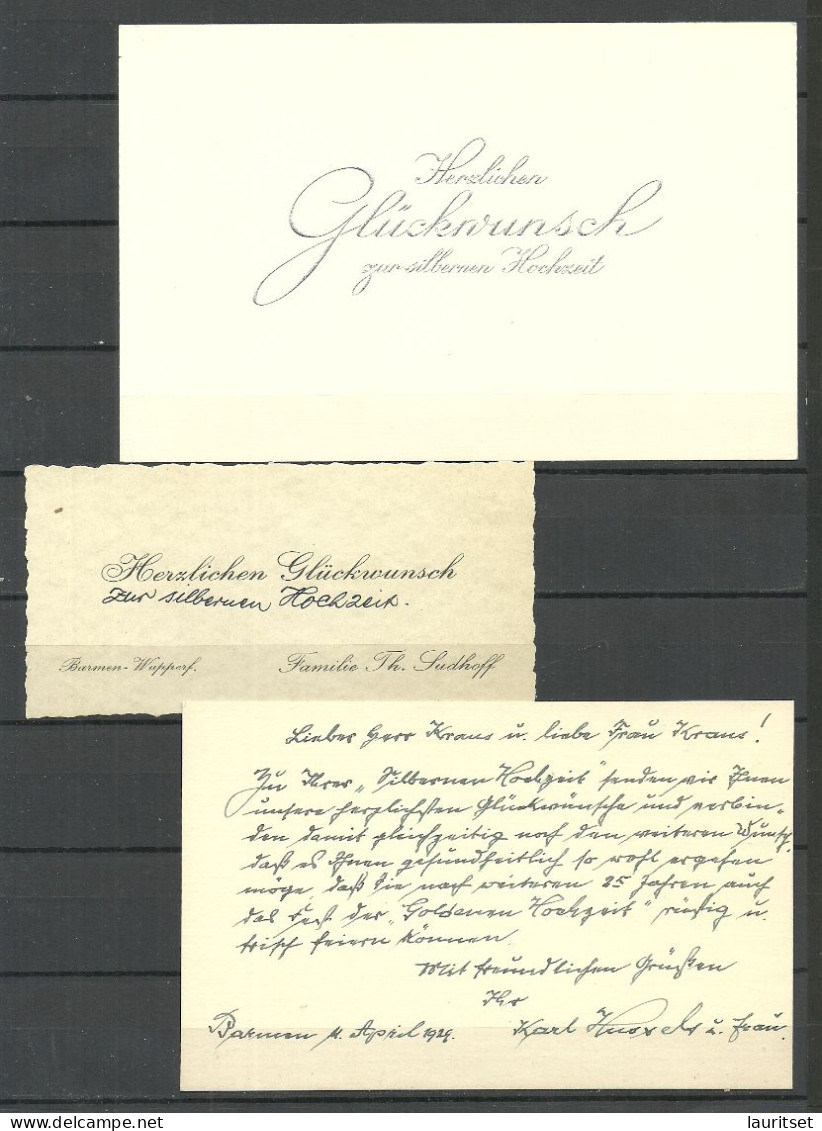 Herzlichen
Glückwunsch
zur silbernen Hochzeit
Herzlichen Glückwunsch
zur silbernen Hochzeit.
Barmen-Wupperf. Familie Th. Sudhoff
Lieber Herr Kraus u. liebe Frau Kraus!
Zu Ihrer „Silbernen Hochzeit" senden wir Ihnen
unsere herzlichsten Glückwünsche und verbin-
den damit gleichzeitig noch den weiteren Wunsch,
daß es Ihnen gesundheitlich so wohl ergehen
möge, daß Sie nach weiteren 25 Jahren auch
das Fest der „Goldenen Hochzeit" rüstig u.
frisch feiern können.
Mit freundlichen Grüßen
Ihr
Barmen April 1929. Karl u. Frau.
www.delcampe.net lauritset